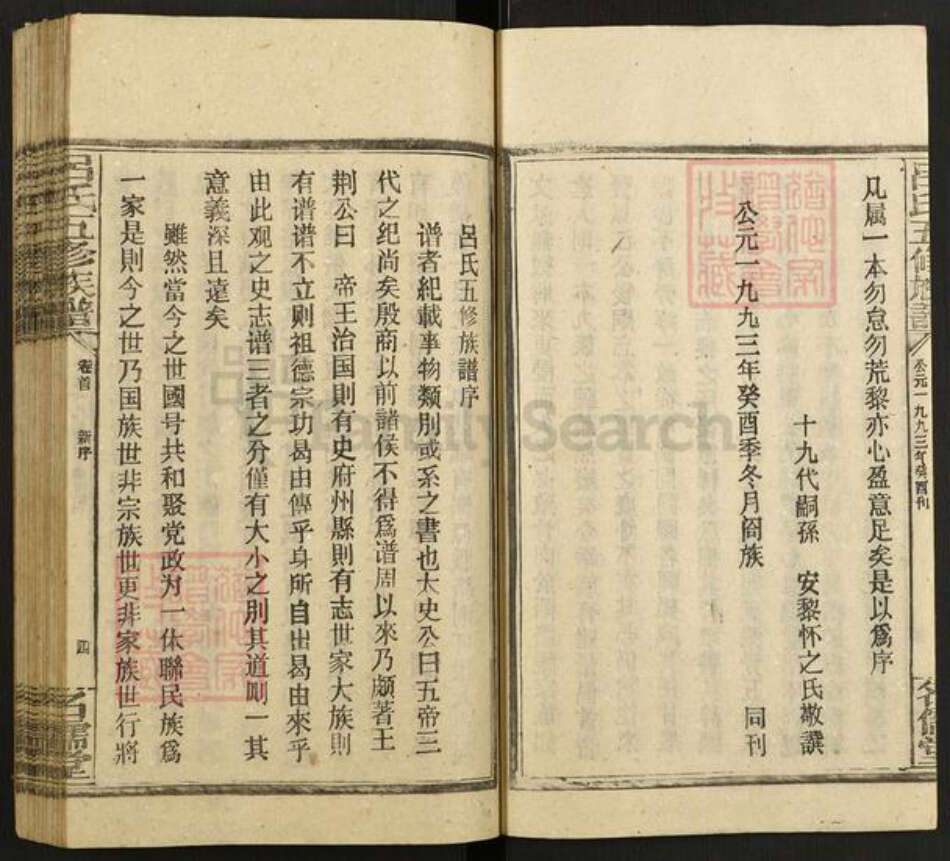 凡属一本勿怠勿荒黎亦心盈意足矣是以爲序
十九代嗣孫 安黎怀之氏敬譔
公元一九九三年癸酉季冬月阖族 同刊
公元一九九三年癸酉刊
呂氏五修族譜
卷首 新序 四
名儒堂
呂氏五修族譜序
谱者紀載事物類別或系之書也太史公曰五帝三
代之纪尚矣殷商以前諸侯不得爲谱周以來乃頗著王
荆公曰 帝王治国則有史府州縣則有志世家大族則
有谱谱不立则祖德宗功曷由傳乎身所自出曷由來乎
由此观之史志谱三者之分僅有大小之別其道則一其
意義深且遠矣
雖然當今之世國号共和聚党政为一体聯民族爲
一家是則今之世乃国族世非宗族世更非家族世行將
FamilySearch